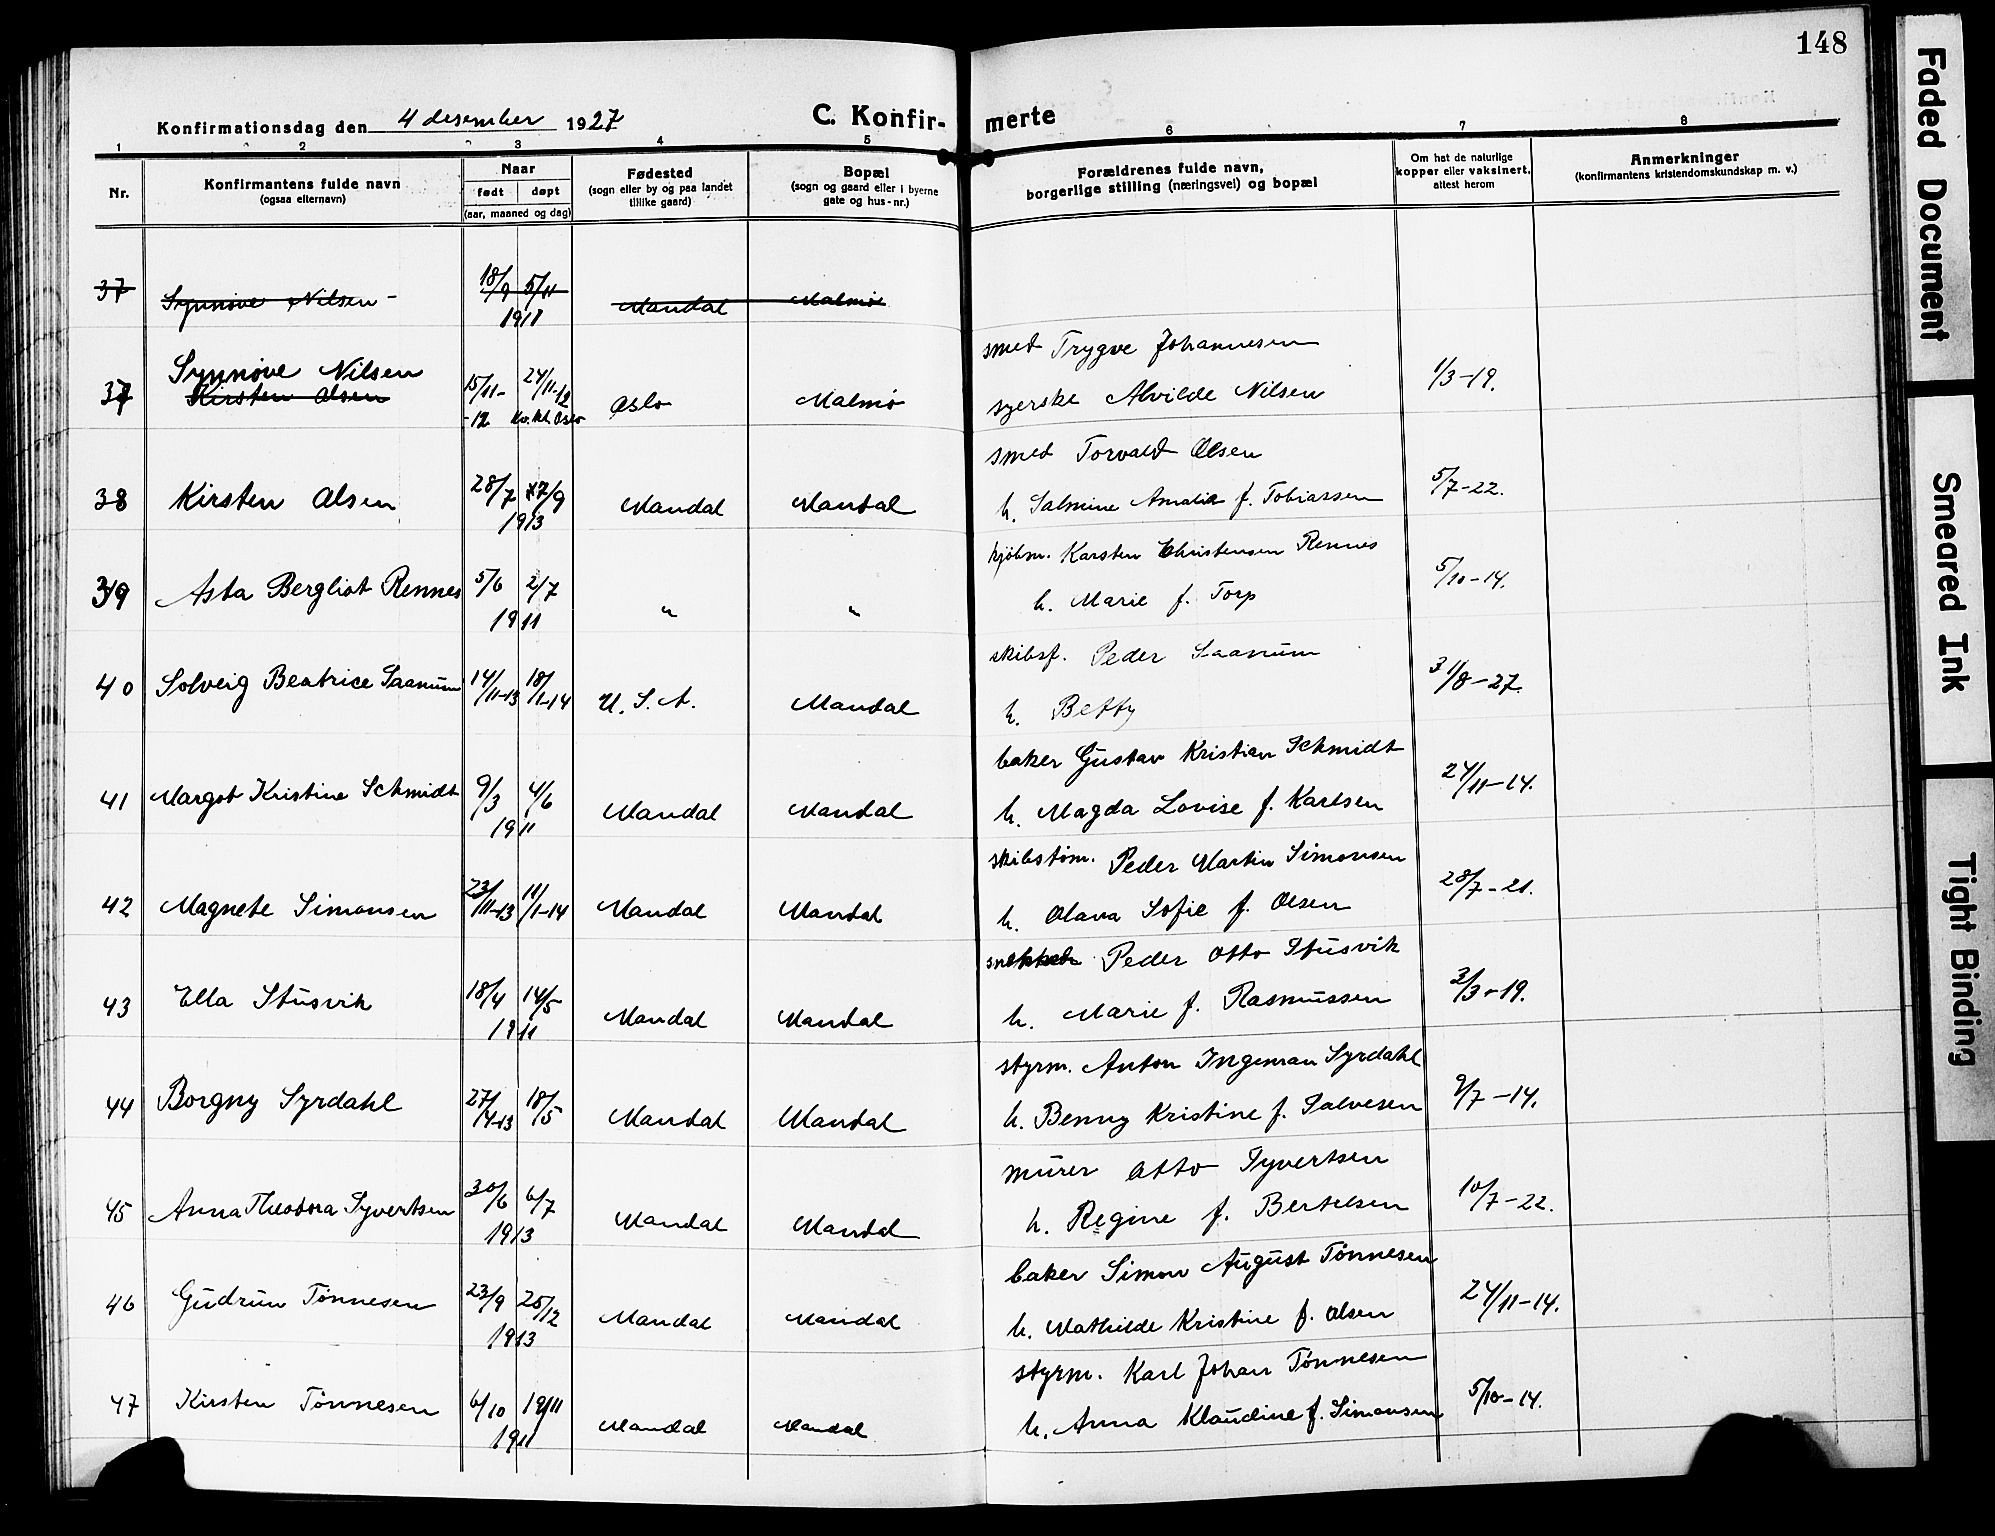 148
Konfirmationsdag den 4 desember 1927
C. Konfir- merte
1 2 3 4 5 6 7 8
Nr.
Konfirmantens fulde navn
(ogsaa efternavn)
Naar
født døpt
(aar, maaned og dag)
Fødested
(sogn eller by og paa landet
tillike gaard)
Bopæl
(sogn og gaard eller i byerne
gate og hus-nr.)
Forældrenes fulde navn,
borgerlige stilling (næringsvei) og bopæl
Om hat de naturlige
kopper eller vaksinert,
attest herom
Anmerkninger
(konfirmantens kristendomskundskap m. v.)
37 Synnøve Nilsen - 18/9 5/11 Mandal Malmø
1911
smed Trygve Johannesen
Synnøve Nilsen
37 Kirsten Olsen 15/11- 24/11-12 Oslo Malmø syerske Alvilde Nilsen 1/3-19.
-12 Kv.kl. Oslo
smed Torvald Olsen
38 Kirsten Olsen 28/7 7/9 Mandal Mandal h. Salmine Amalia f. Tobiassen 5/7-22.
1913
kjøbm. Karsten Christensen Rennes
39 Asta Bergliot Rennes 5/6 2/7 " " h. Marie f. Torp 5/10-14.
1911
skibsf. Peder Saanum
40 Solveig Beatrice Saanum 14/11-13 18/1-14 U. S. A. Mandal h. Betty 31/8-27.
baker Gustav Kristian Schmidt
41 Margot Kristine Schmidt 9/3 4/6 Mandal Mandal h. Magda Lovise f. Karlsen 24/11-14.
1911
skibstøm. Peder Martin Simonsen
42 Magnete Simonsen 23/11-13 11/1-14 Mandal Mandal h. Olava Sofie f. Olsen 28/7-21.
snekker Peder Otto Stusvik
43 Ella Stusvik 18/4 14/5 Mandal Mandal h. Marie f. Rasmussen 3/3-19.
1911
styrm. Anton Ingeman Syrdahl
44 Borgny Syrdahl 27/4-13 18/5 Mandal Mandal h. Benny Kristine f. Salvesen 9/7-14.
murer Otto Syvertsen
45 Anna Theodora Syvertsen 30/6 6/7 Mandal Mandal h. Regine f. Bertelsen 10/7-22.
1913
baker Simon August Tønnesen
46 Gudrun Tønnesen 23/9 25/12 Mandal Mandal h. Mathilde Kristine f. Olsen 24/11-14.
1913
styrm. Karl Johan Tønnesen
47 Kirsten Tønnesen 6/10 19/11 Mandal Mandal h. Anna Klaudine f. Simonsen 5/10-14.
1911
Faded Document
Smeared Ink
Tight Binding